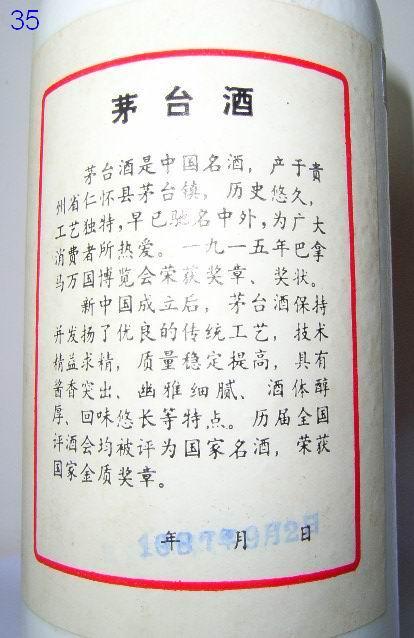 35
茅台酒
茅台酒是中国名酒，产于贵
州省仁怀县茅台镇，历史悠久，
工艺独特，早已驰名中外，为广大
消费者所热爱。一九一五年巴拿
马万国博览会荣获奖章、奖状。
新中国成立后，茅台酒保持
并发扬了优良的传统工艺，技术
精益求精，质量稳定提高，具有
酱香突出、幽雅细腻、酒体醇
厚、回味悠长等特点。历届全国
评酒会均被评为国家名酒，荣获
国家金质奖章。
年 月 日
1987年9月2日